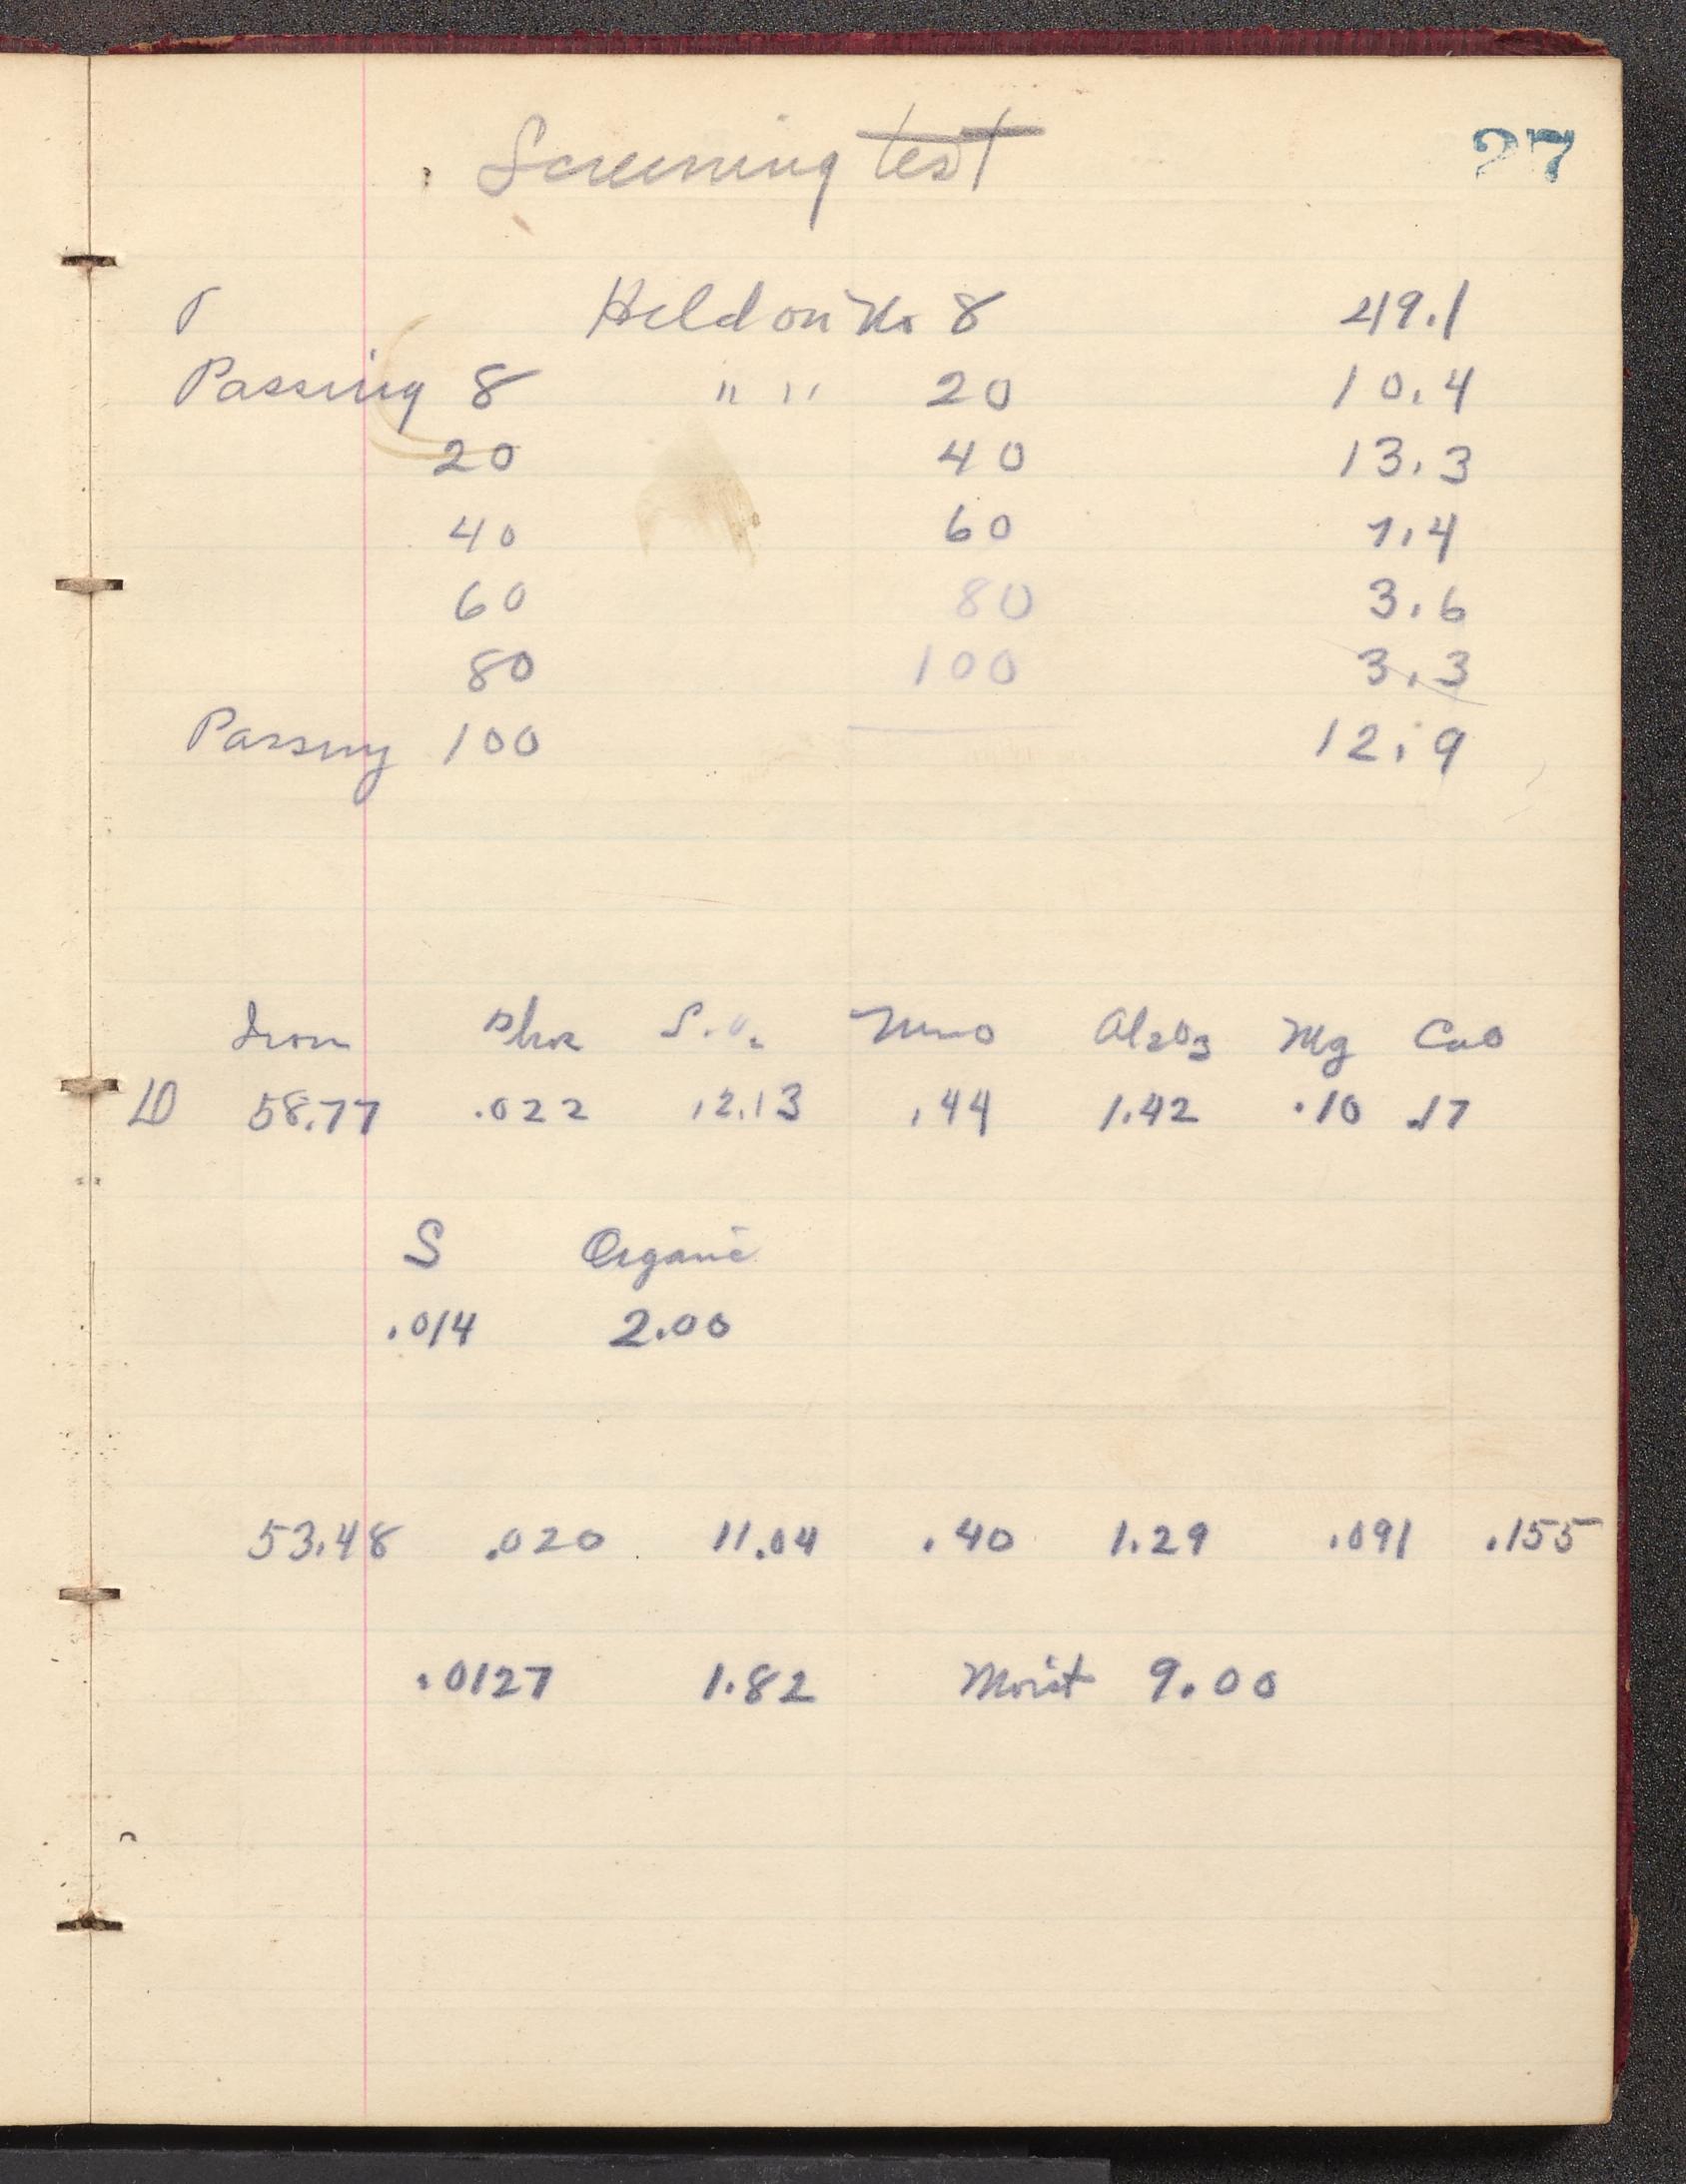 27
Screening test
Held on No 8 49.1
Passing 8 " " 20 10.4
20 40 13.3
40 60 7.4
60 80 3.6
80 100 3.3
Passing 100 12.9
Iron Phos SiO2 MnO Al2O3 Mg CaO
58.77 .022 12.13 .44 1.42 .10 .17
S Organic
.014 2.00
53.48 .020 11.04 .40 1.29 .091 .155
.0127 1.82 Moist 9.00